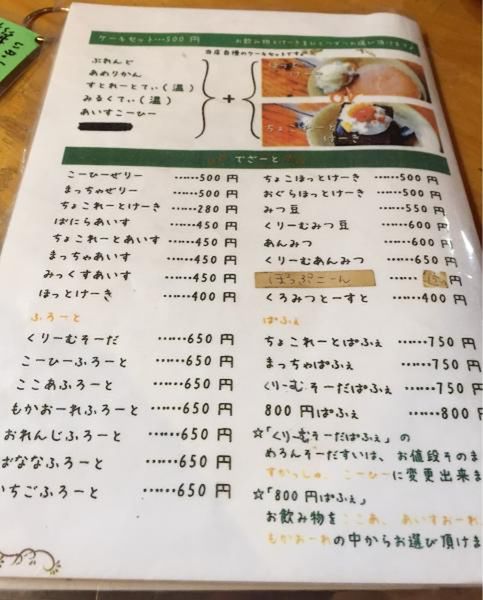 ケーキセット…500円 お飲み物とけーきをひとつずつお選び頂けます♪
当店自慢のケーキセットです。
ぶれんど
あめりかん
すとれーとてぃ(温)
みるくてぃ(温)
あいすこーひー
+
ほっとけーき
or
ちょこれーと
けーき
でざーと
こーひぜりー ……500円
まっちゃぜりー ……500円
ちょこれーとけーき ……280円
ばにらあいす ……450円
ちょこれーとあいす ……450円
まっちゃあいす ……450円
みっくすあいす ……450円
ほっとけーき ……400円
ちょこほっとけーき ……500円
おぐらほっとけーき ……500円
みつ豆 ……550円
くりーむみつ豆 ……600円
あんみつ ……600円
くりーむあんみつ ……650円
ぽっぷこーん …… 円
くろみつとーすと ……400円
ふろーと
くりーむそーだ ……650円
こーひーふろーと ……650円
ここあふろーと ……650円
もかおーれふろーと ……650円
おれんじふろーと ……650円
ばななふろーと ……650円
いちごふろーと ……650円
ぱふぇ
ちょこれーとぱふぇ ……750円
まっちゃぱふぇ ……750円
くりーむそーだぱふぇ ……750円
800円ぱふぇ ……800円
☆「くりーむそーだぱふぇ」の
めろんそーだすいは、お値段そのまま
すかっしゅ、こーひーに変更出来ま
☆「800円ぱふぇ」
お飲み物をここあ、あいすおーれ
もかおーれの中からお選び頂けま